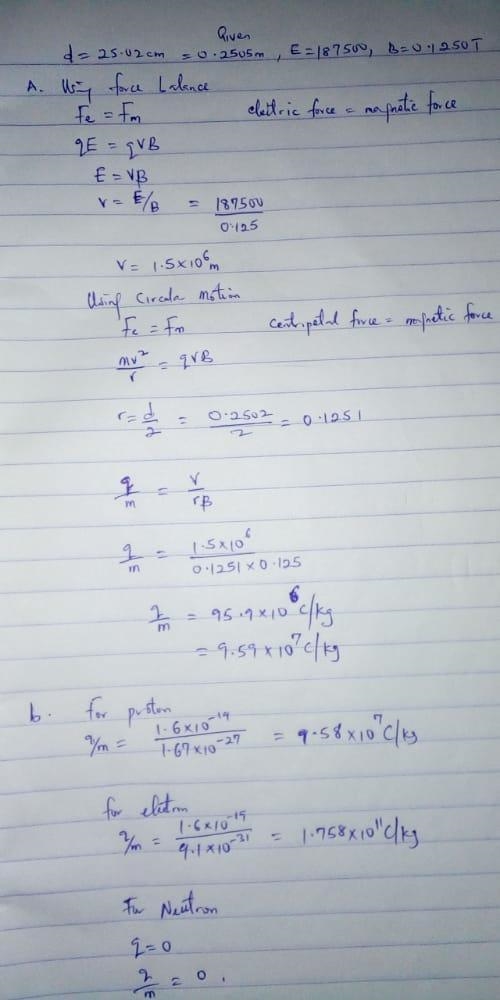 Given
d = 25.02cm = 0.2505m, E = 187500, B = 0.1250T
A. Using force balance
Fe = Fm electric force = magnetic force
qE = qVB
E = VB
V = E/B = 187500/0.125
V = 1.5×10⁶m
Using Circula motion
Fc = Fm centripetal force = magnetic force
mv²/r = qVB
r = d/2 = 0.2502/2 = 0.1251
q/m = V/rB
q/m = 1.5×10⁶/0.1251×0.125
q/m = 95.9×10⁶ C/kg
= 9.59×10⁷ C/kg
b. for proton
q/m = 1.6×10⁻¹⁹/1.67×10⁻²⁷ = 9.58×10⁷ C/kg
for eletron
q/m = 1.6×10⁻¹⁹/9.1×10⁻³¹ = 1.758×10¹¹ C/kg
For Neutron
q = 0
q/m = 0.